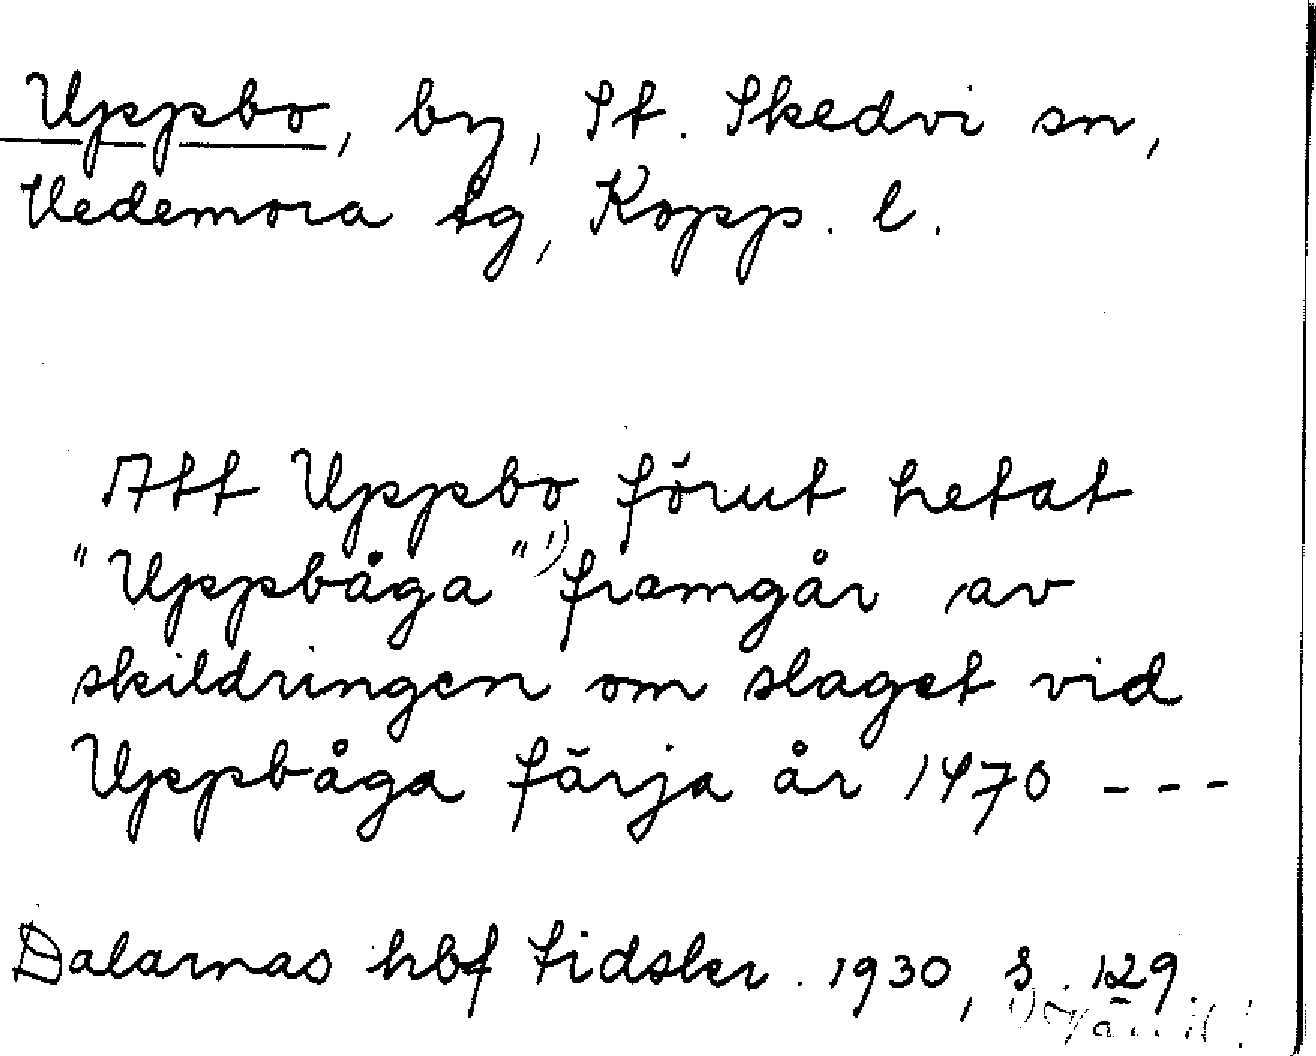 Uppbo, by, St. Skedvi sn,
Vedemora tg, Kopp. l.
Att Uppbo förut hetat
"Uppbåga"¹) framgår av
skildringen om slaget vid
Uppbåga färja år 1470 ---
Dalarnas hbf tidskr. 1930, s. 129